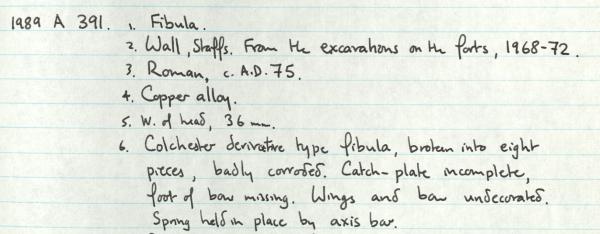 1989 A 391. 1. Fibula.
2. Wall, Staffs. From the excavations on the forts, 1968-72.
3. Roman, c. A.D. 75.
4. Copper alloy.
5. W. of head, 36 mm.
6. Colchester derivative type fibula, broken into eight
pieces, badly corroded. Catch-plate incomplete,
foot of bow missing. Wings and bow undecorated.
Spring held in place by axis bar.